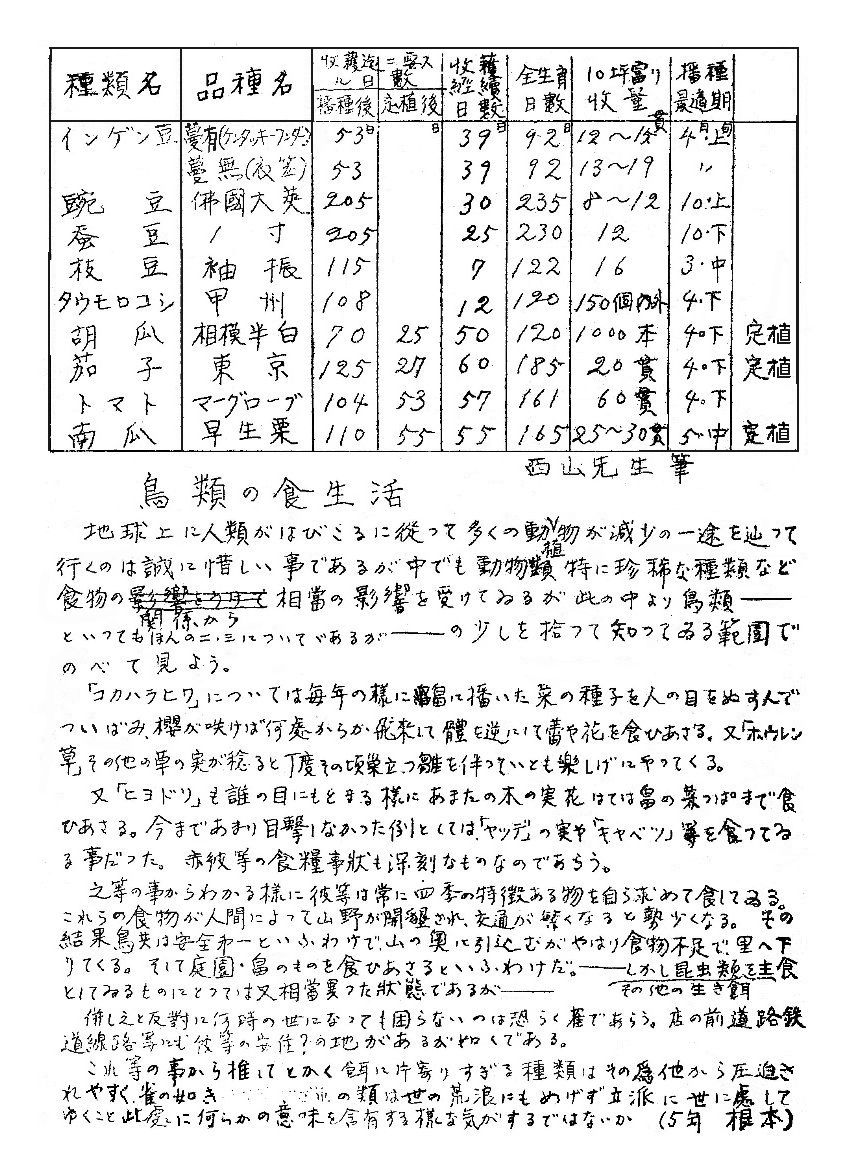 種類名 品種名 収穫迄ニ要スル日數 収穫継續日數 全生育日數 10坪當り収量 播種最適期
播種後 定植後
インゲン豆 蔓有(ケンタッキーワンダー) 53日 日 39日 92日 12〜15貫 4月上旬
蔓無(衣笠) 53 39 92 13〜19 〃
豌豆 佛國大莢 205 30 235 8〜12 10.上
蚕豆 1寸 205 25 230 12 10.下
枝豆 袖振 115 7 122 16 3.中
タウモロコシ 甲州 108 12 120 150個内外 4.下
胡瓜 相模半白 70 25 50 120 1000本 4.下 定植
茄子 東京 125 27 60 185 20貫 4.下 定植
トマト マーグローブ 104 53 57 161 60貫 4.下
南瓜 早生栗 110 55 55 165 25〜30貫 5.中 定植
西山先生筆
鳥類の食生活
地球上に人類がはびこるに從つて多くの動植物が減少の一途を辿つて
行くのは誠に惜しい事であるが中でも動物類特に珍稀な種類など
食物の関係から相當の影響を受けてゐるが此の中より鳥類――
といつてもほんの二、三についてであるが――の少しを拾つて知つてゐる範囲で
のべて見よう。
「コカハラヒワ」については毎年の様に畠に播いた菜の種子を人の目をぬすんで
ついばみ、櫻が咲けば何處からか飛来して體を逆にして蕾や花を食ひあさる。又「ホウレン
草」その他の草の実が稔ると丁度その頃巣立つ雛を伴つていとも楽しげにやつてくる。
又「ヒヨドリ」も誰の目にもとまる様にあまたの木の実花はては畠の菜つぱまで食
ひあさる。今まであまり目撃しなかつた例としては、「ヤツデ」の実や「キャベツ」等を食つてゐ
る事だつた。亦彼等の食糧事状も深刻なものなのであらう。
之等の事からわかる様に彼等は常に四季の特徴ある物を自ら求めて食してゐる。
これらの食物が人間によつて山野が開墾され、交通が繁くなると勢少くなる。その
結果鳥共は安全第一といふわけで、山の奥に引込むがやはり食物不足で、里へ下
りてくる。そして庭園・畠のものを食ひあさるといふわけだ。――しかし昆虫類その他の生き餌を主食
としてゐるものにとつては又相當異つた状態であるが――
併しえと反對に何時の世になつても困らないのは恐らく雀であらう。店の前道路鉄
道線路等にも彼等の安住?の地があるが如くである。
これ等の事から推してとかく餌に片寄りすぎる種類はその為他から圧迫さ
れやすく、雀の如き の類は世の荒浪にもめげず立派に世に處して
ゆくこと此處に何らかの意味を含有する様な気がするではないか (5年 根本)